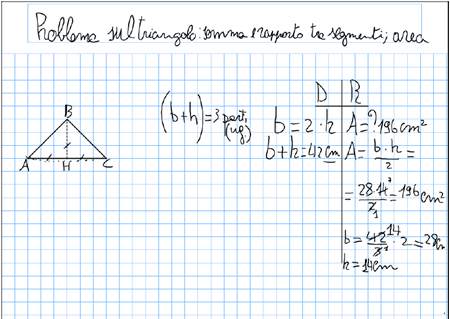 Problema sul triangolo: somma e rapporto tra segmenti; area
D R
(b+h)=3 parti
(ug.)
b=2·h A=?196cm²
b+h=42cm A=b·h/2=
B
A H C
=28·14⁷/2₁=196cm²
b=42¹⁴/3₁·2=28cm
h=14cm